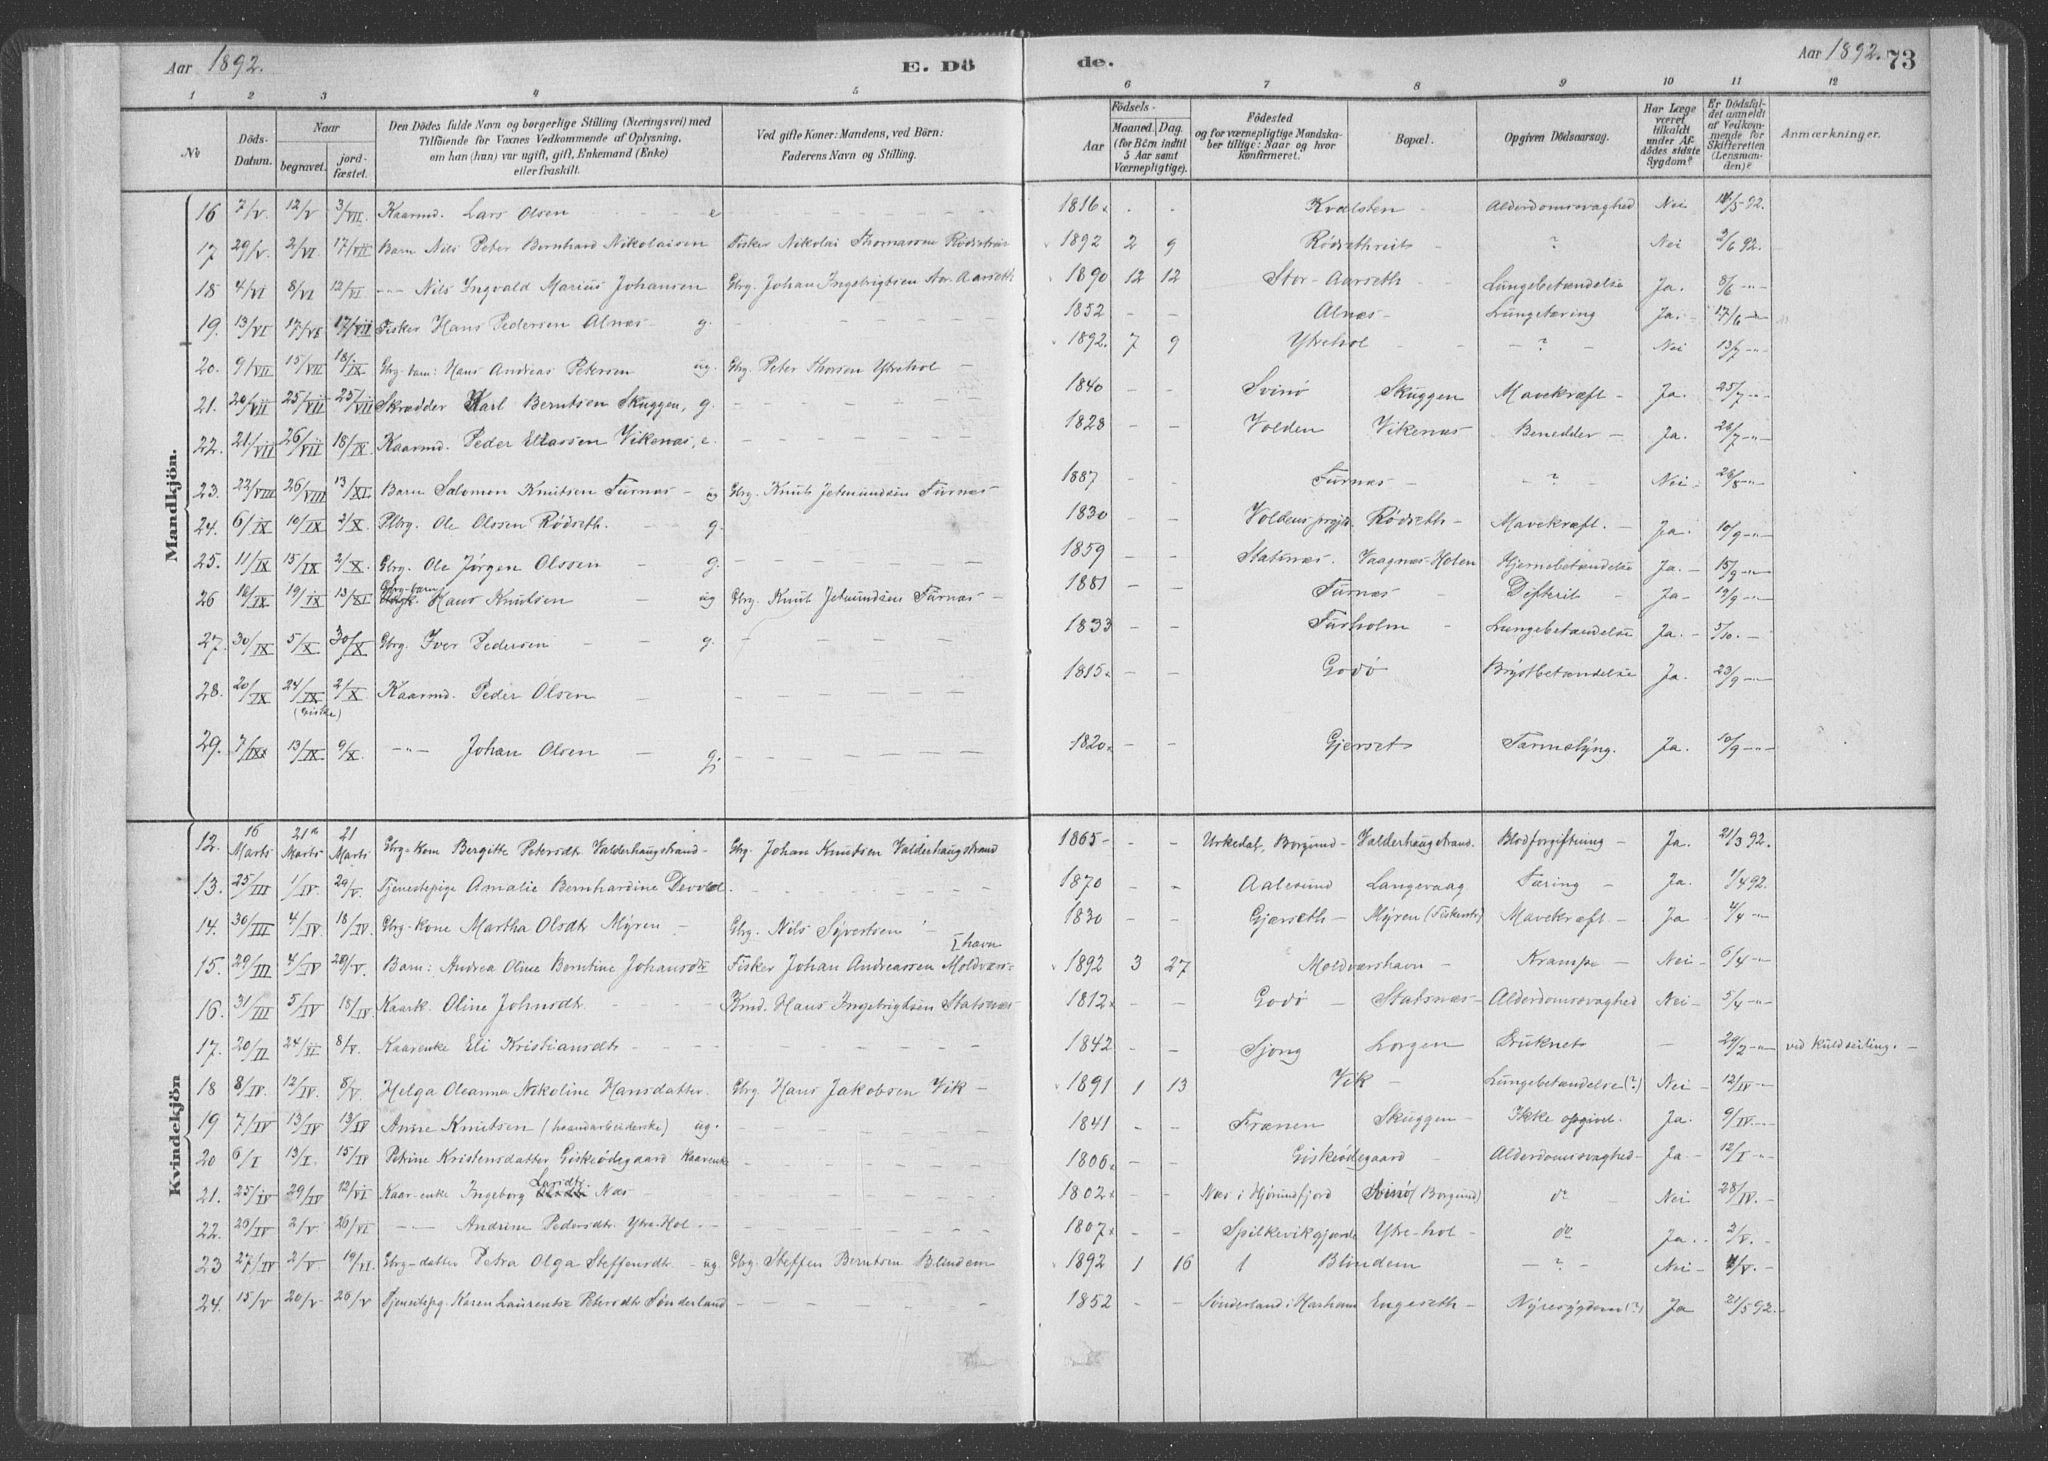 Aar 1892. E. Dö de. Aar 1892. 73
1 2 3 4 5 6 7 8 9 10 11 12
No Döds-Datum. Naar begravet. jord-fæstet. Den Dödes fulde Navn og borgerlige Stilling (Næringsvei) med Tilföiende for Voxnes Vedkommende af Oplysning, om han (hun) var ugift, gift, Enkemand (Enke) eller fraskilt. Ved gifte Koner: Mandens, ved Börn: Faderens Navn og Stilling. Födsels- Aar Maaned. Dag. (for Börn indtil 5 Aar samt Værnepligtige). Födested og for værnepligtige Mandskaber tillige: Naar og hvor konfirmeret. Bopæl. Opgiven Dödsaarsag. Har Læge været tilkaldt under Afdödes sidste Sygdom? Er Dödsfaldet anmeldt af Vedkommende for Skifteretten (Lensmanden)? Anmærkninger.
Mandkjön.
16 7/V 12/V 3/VII. Kaarmd. Lars Olsen e 1816 Kvalsten Alderdomssvaghed Nei /5 92.
17 29/V. 2/VI. 17/VII Barn Nils Peter Bernhard Nikolaisen Fisker Nikolai Thomassen 1892 2 9 Rödsethreit ? Nei 2/6 92.
18 4/VI 8/VI 12/VI Nils Ingvald Marius Johansen Gbrg. Johan Ingebrigtsen Stor-Aarseth 1890 12 12 Stor-Aarseth Lungebetændelse Ja. 8/6 -"-
19. 13/VI 17/VI 17/VII Fisker Hans Pedersen Alnæs g. 1852 Alnæs Lungetæring Ja. 17/6 -"-
20. 9/VII 15/VII 18/IX Gbrg. barn: Hans Andreas Petersen ug. Gbrg. Peter Thorsen Ytrehol 1892. 7 9 Ytrehol ? Nei 13/7 -"-
21. 20/VII 25/VII 25/VII Skrædder Karl Berntsen Skuggen, g. 1840 Svinö Skuggen Mavekræft Ja. 25/7 -"-
22. 21/VII 26/VII 18/IX Kaarmd. Peder Eliassen Vikenæs, e. 1828 Volden Vikenæs Benedder Ja. 26/7 -"-
23. 22/VIII 26/VIII 13/XI Barn Salomon Knutsen Furnæs ug Gbrg. Knut Jetmundsen Furnæs 1887 Furnæs ? Nei 26/8 -"-
24. 6/IX 10/IX 2/X. Gbrg. Ole Olsen Rödseth. g. 1830 Voldens prgjld. Rödseth Mavekræft. Ja. 10/9 -"-
25. 11/IX 15/IX 2/X. Gbrg. Ole Jörgen Olsen g. 1859 Statsnæs. Vaagnæs-Holen Hjernebetændelse Ja. 15/9 -"-
26 16/IX 19/IX 13/XI Gbrg-barn Hans Knutsen ug Gbrg. Knut Jetmundsen Furnæs 1881 Furnæs Difterit Ja 19/9 -"-
27. 30/IX 5/X 30/X Gbrg. Iver Pedersen g. 1833 Furholm Lungebetændelse Ja. 5/10.
28. 20/IX 24/IX (Giske) 2/X Kaarmd. Peder Olsen 1815 Godö Brystbetændelse Ja. 23/9 -"-
29. 7/IX 13/IX 9/X. -"- Johan Olsen g. 1820 Gjerset Tarmslyng. Ja. 10/9 -"-
Kvindekjön
12. 16 Marts 21 Marts 21 Marts Gbrg-kone Bergitte Petersdt Valderhaugstrand Gbrg. Johan Knutsen Valderhaugstrand 1865 Urkedal, Borgund Valderhaugstrand. Blodforgiftning Ja. 21/3 92.
13. 25/III 1/IV. 29/V. Tjenestepige Amalie Bernhardine Devold 1870 Aalesund Langevaag Tæring Ja. 1/4 92.
14. 30/III 4/IV 18/IV. Gbrg-kone Martha Olsdt Myren Gbrg. Nils Syvertsen 1830 Gjerseth Myren Mavekræft Ja 4/4 -"-
15. 29/III 4/IV 29/V. Barn: Andrea Oline Berntine Johansdt Fisker Johan Andreassen Moldværs-havn 1892 3 27 Moldværshavn Krampe Nei 6/4 -"-
16. 31/III 5/IV 15/IV. Kaark. Oline Johnsdt. Kmd. Hans Ingebrigtsen Statsnæs 1812 Godö Statsnæs Alderdomssvaghed Nei 5/4 -"-
17. 20/II 24/II 8/V. Kaarenke Eli Kristiansdt 1842 Sjong Lorgen Druknet 29/2 -"- ved Kuldseiling.
18 8/IV. 12/IV. 8/V. Helga Oleanna Nikoline Hansdatter. Gbrg. Hans Jakobsen Vik 1891 1 13 Vik Lungebetændelse (?) Nei 12/IV -"-
19 7/IV 13/IV 13/IV Anne Knutsen (haandarbeiderske) ug. 1841 Frænen Skuggen Ikke opgivet. Ja. 9/IV. -"-
20 6/I 13/I. 15/IV Petrine Kristensdatter Giskeödegaard Kaarenke 1806 Giskeödegaard Alderdomssvaghed Ja 12/I -"-
21. 25/IV 29/IV 12/VI Kaar-enke Ingeborg Larsdt Næs 1802 Næs i Hjörundfjord Svinö (Borgund) do Nei 28/IV.
22. 26/IV 2/V. 26/VI -"- Andrine Pedersdt. Ytre-Hol. 1807 Spilkevikgjærde Ytre-hol do Ja. 2/V.
23 27/IV 2/V 19/VI. Gbrg-datter Petra Olga Steffensdt. ug. Gbrg. Steffen Berntsen Blindem 1892 1 16 Blindem ? Nei /V.
24. 15/V 20/V. 26/V Tjenestepg. Karen Laurentse Petersdt Sönderland 1852 Sönderland i Harham Engeseth Nyresygdom (?) Ja 21/5 92.